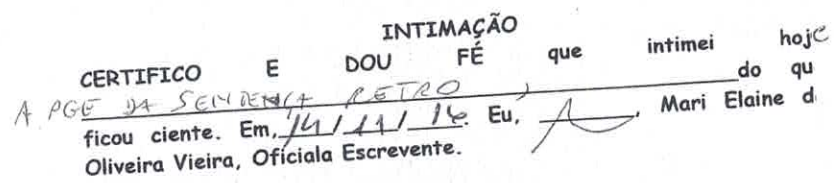 INTIMAÇÃO
CERTIFICO E DOU FÉ que intimei hoje
A PGE DA SENTENÇA RETRO, do qu
ficou ciente. Em, 14/11/16. Eu, , Mari Elaine d
Oliveira Vieira, Oficiala Escrevente.